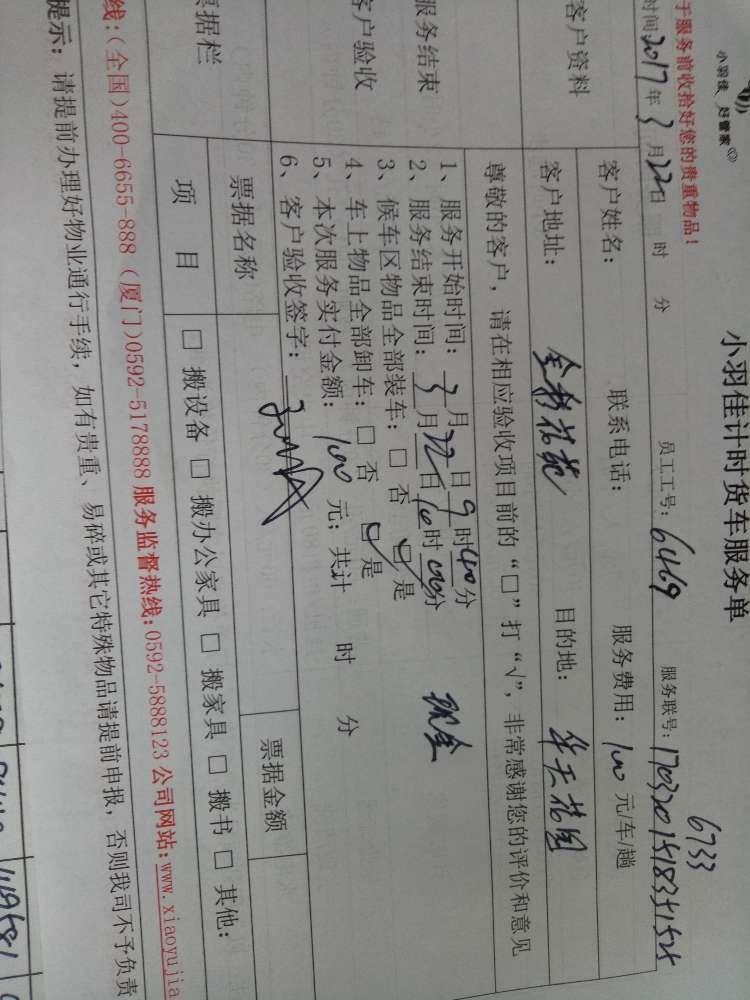 小羽佳 好管家
小羽佳计时货车服务单
于服务前收拾好您的贵重物品！
6733
时间 2017 年 3 月 22 日 时 分 员工工号: 6469 服务联号: 1703201518351525
客户资料
客户姓名: 联系电话: 服务费用: 100 元/车/趟
客户地址: 目的地: 华天花园
服务结束
客户验收
尊敬的客户，请在相应验收项目前的“□”打“√”，非常感谢您的评价和意见
1、服务开始时间: 3 月 22 日 9 时 40 分
2、服务结束时间: 3 月 22 日 10 时 00 分 现金
3、候车区物品全部装车: □ 否 ☑ 是
4、车上物品全部卸车: □ 否 ☑ 是
5、本次服务实付金额: 100 元; 共计 时 分
6、客户验收签字:
票据栏
票据名称 票据金额
项 目 □ 搬设备 □ 搬办公家具 □ 搬家具 □ 搬书 □ 其他:
线:(全国)400-6655-888 (厦门)0592-5178888 服务监督热线:0592-5888123 公司网站:www.xiaoyujia
提示: 请提前办理好物业通行手续, 如有贵重、易碎或其它特殊物品请提前申报, 否则我司不予负责